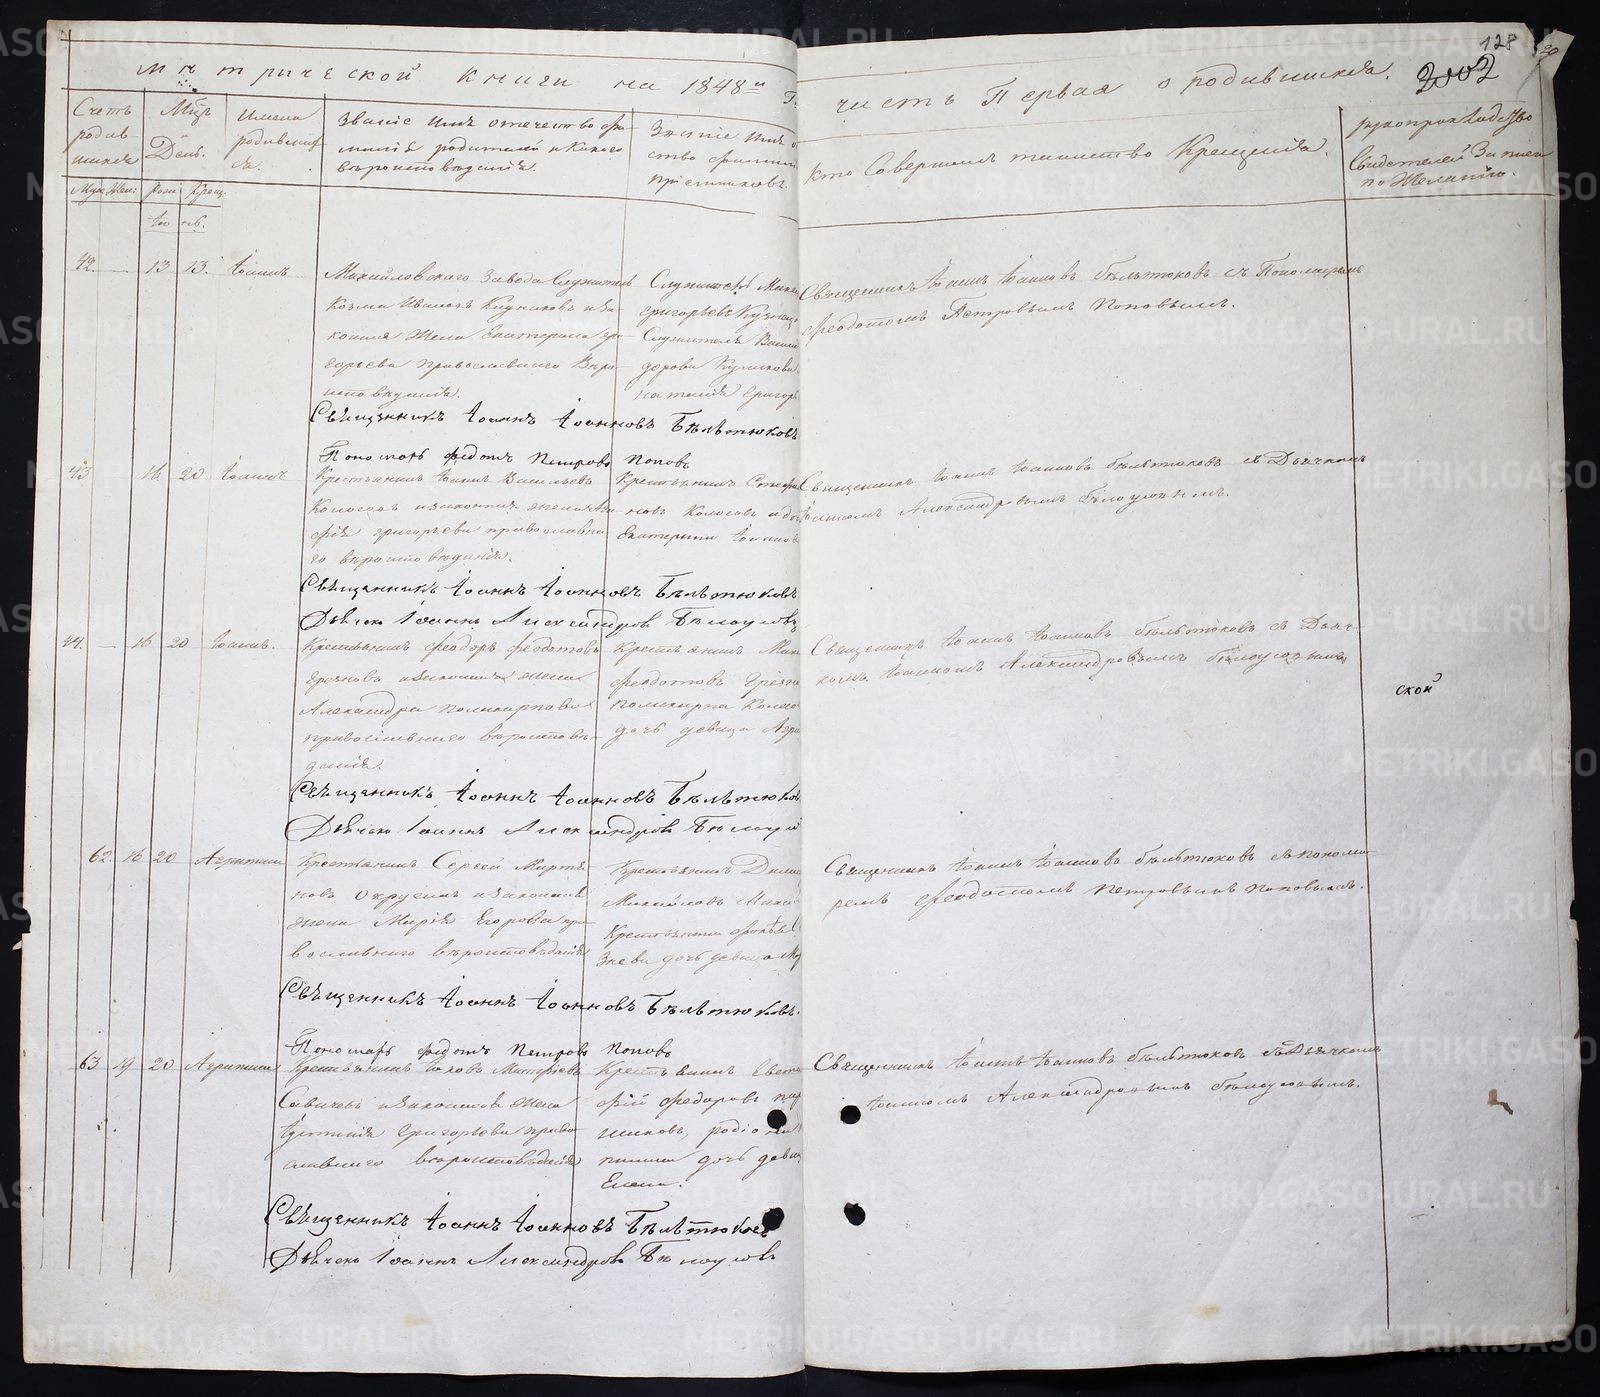 Метрической книги на 1848й Г.
Счетъ родив-шихся
Муж. Жен:
Мсцъ День.
Рожд. Крещ.
Имена родившихся.
Званіе имя отечество фа-
милія родителей и какого
вѣроисповѣданія.
Званіе имя о
ство фамилія
пріемниковъ.
часть Первая о родившихся.
128
2002
кто Совершалъ таинство Крещенія.
рукоприкладство
Свидетелей записи
по Желанію.
42. — 13 13. Іоаннъ
Михайловскаго Завода Служитель
Козма Ивановъ и за-
конная Жена Екатерина гри-
горьева православнаго Вѣро-
исповѣданія.
Служитель Миха
григорьевъ
Служителя Васил
дорова
Священникъ Іоаннъ Іоанновъ Бѣльтюковъ съ Пономаремъ
феодотомъ Петровымъ Поповымъ.
Священникъ Іоаннъ Іоанновъ Бѣльтюковъ
Пономарь федотъ Петровъ Поповъ
43 16 20 Іоаннъ
Крестьянинъ Іоаннъ Васильевъ
Колосовъ и законная жена
григорьева православна-
го вѣроисповѣданія.
Крестьянинъ Стефан
новъ Колосовъ и до
Екатерина Іоанно
Священникъ Іоаннъ Іоанновъ бѣльтюковъ съ Дьячкомъ
Іоанномъ Александровымъ бѣлоусовымъ.
Священникъ Іоаннъ Іоанновъ Бѣльтюковъ
Дьячекъ Іоаннъ Александровъ Бѣлоусовъ
44. — 16 20 Іоаннъ.
Крестьянинъ феодоръ феодотовъ
и законная жена
Александра поликарпова
православнаго вѣроисповѣ-
данія.
Крестьянинъ Миха
феодотовъ
поликарпа Колосо
дочь девица Агри
Священникъ Іоаннъ Іоанновъ бѣльтюковъ съ Дьяч-
комъ Іоанномъ Александровымъ бѣлоусовымъ
ской
Священникъ Іоаннъ Іоанновъ Бѣльтюковъ
Дьячекъ Іоаннъ Александровъ Бѣлоусов
62. 16 20 Агрипина
Крестьянинъ Сергей Марты-
новъ и законная
жена Марія Егорова пра-
вославнаго вѣроисповѣданія
Крестьянинъ
Михайловъ
Крестьянина
дочь девица
Священникъ Іоаннъ Іоанновъ бѣльтюковъ съ понома-
ремъ феодотомъ петровымъ поповымъ.
Священникъ Іоаннъ Іоанновъ Бѣльтюковъ.
Пономарь федотъ Петровъ Поповъ
63 19 20 Агрипина
Крестьянинъ Іаковъ
Савичевъ и законная жена
Іустинія григорьева право-
славнаго вѣроисповѣданія
Крестьянинъ Евста
фій федоровъ
шиковъ, родіона
дочь девица
Елена.
Священникъ Іоаннъ Іоанновъ бѣльтюковъ съ Дьячкомъ
Іоанномъ Александровымъ бѣлоусовымъ.
Священникъ Іоаннъ Іоанновъ Бѣльтюковъ
Дьячекъ Іоаннъ Александровъ Бѣлоусовъ
METRIKI.GASO-URAL.RU